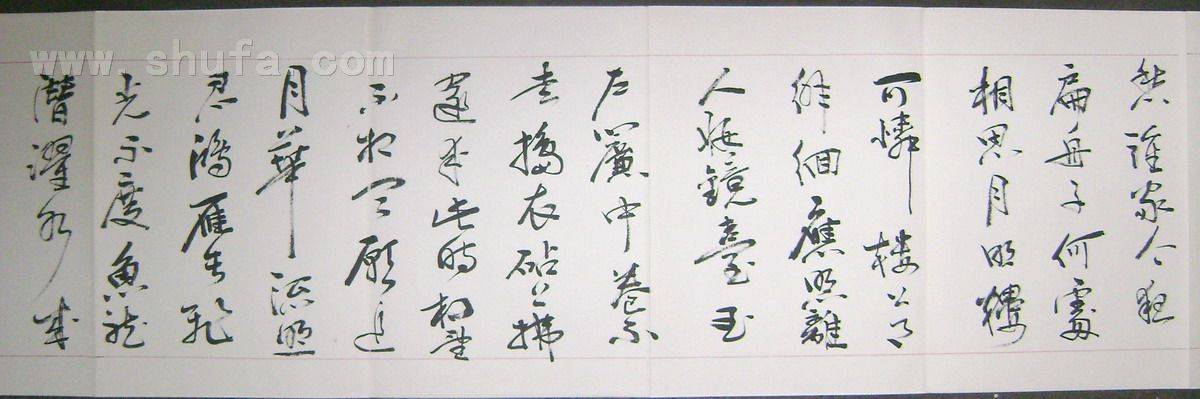 www.shufa.com
愁誰家今夜
扁舟子何處
相思月明樓
可憐樓上月
徘徊應照離
人妝鏡臺玉
戶簾中卷不
去擣衣砧上拂
還來此時相望
不相聞願逐
月華流照
君鴻雁長飛
光不度魚龍
潛躍水成